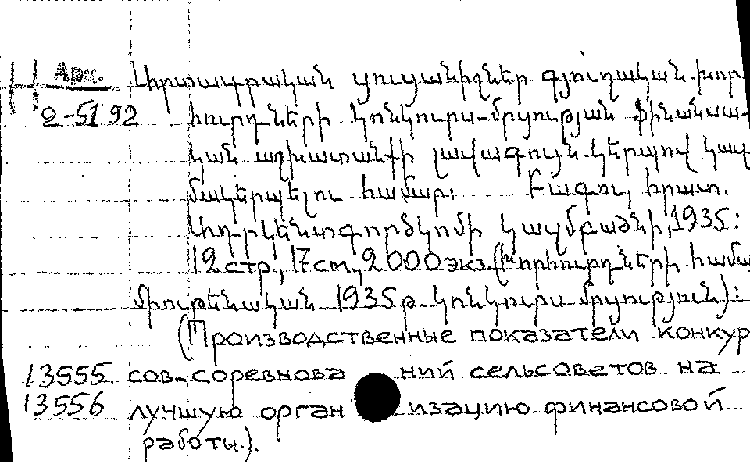 Арм. Արտադրական ցուցանիշներ գյուղական խոր-
2-5192 հուրդների կոնկուրս-մրցության ֆինանսա-
կան աշխատանքի լավագույն կերպով կազ-
մակերպելու համար։ Բագու, հրատ.
1935։
12стр., 17см, 2000экз. (Խորհուրդների համա
միութենական 1935թ. կոնկուրս մրցություն)։
(Производственные показатели конкур
13555 сов-соревнова ний сельсоветов на
13556 лучшую орган изацию финансовой
работы.).